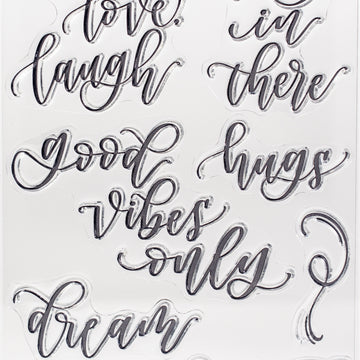 love.
laugh
in
there
good
vibes
only
hugs
dream